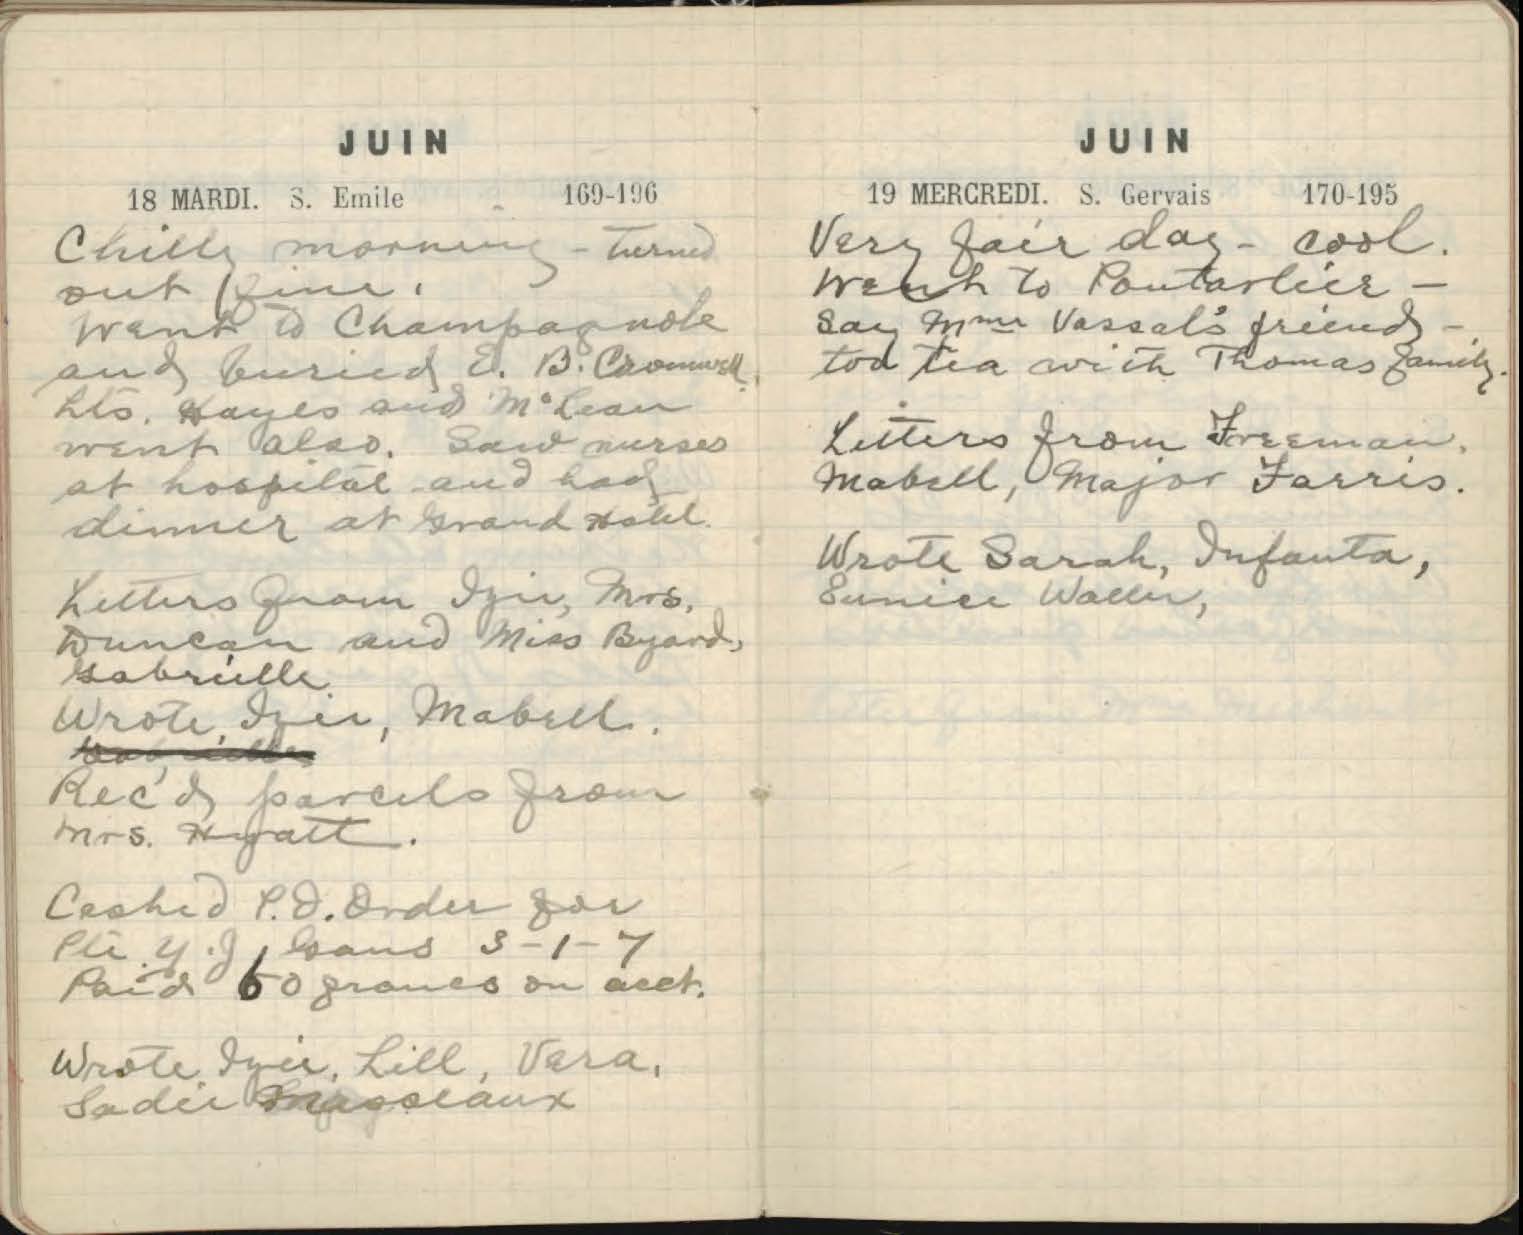 JUIN
18 MARDI. S. Emile 169-196
Chilly morning - turned
out fine.
Went to Champagnole
and buried E. B. Cromwell.
Lts. Hayes and McLean
went also. Saw nurses
at hospital and had
dinner at Grand Hotel.
Letters from Izie, Mrs.
Duncan and Miss Byard,
Gabrielle
Wrote Izie, Mabell.
Gabrielle
Rec'd parcels from
Mrs. Hyatt.
Cashed P.O. Order for
Pte. Gans 3-1-7
Paid 60 francs on acct.
Wrote Izie, Lill, Vera,
Sadie
JUIN
19 MERCREDI. S. Gervais 170-195
Very fair day - cool.
Went to Pontarlier -
Say Mme Vassal's friend -
tod tea with Thomas family.
Letters from Freeman,
Mabell, Major Farris.
Wrote Sarah, Infanta,
Eunice Waller,